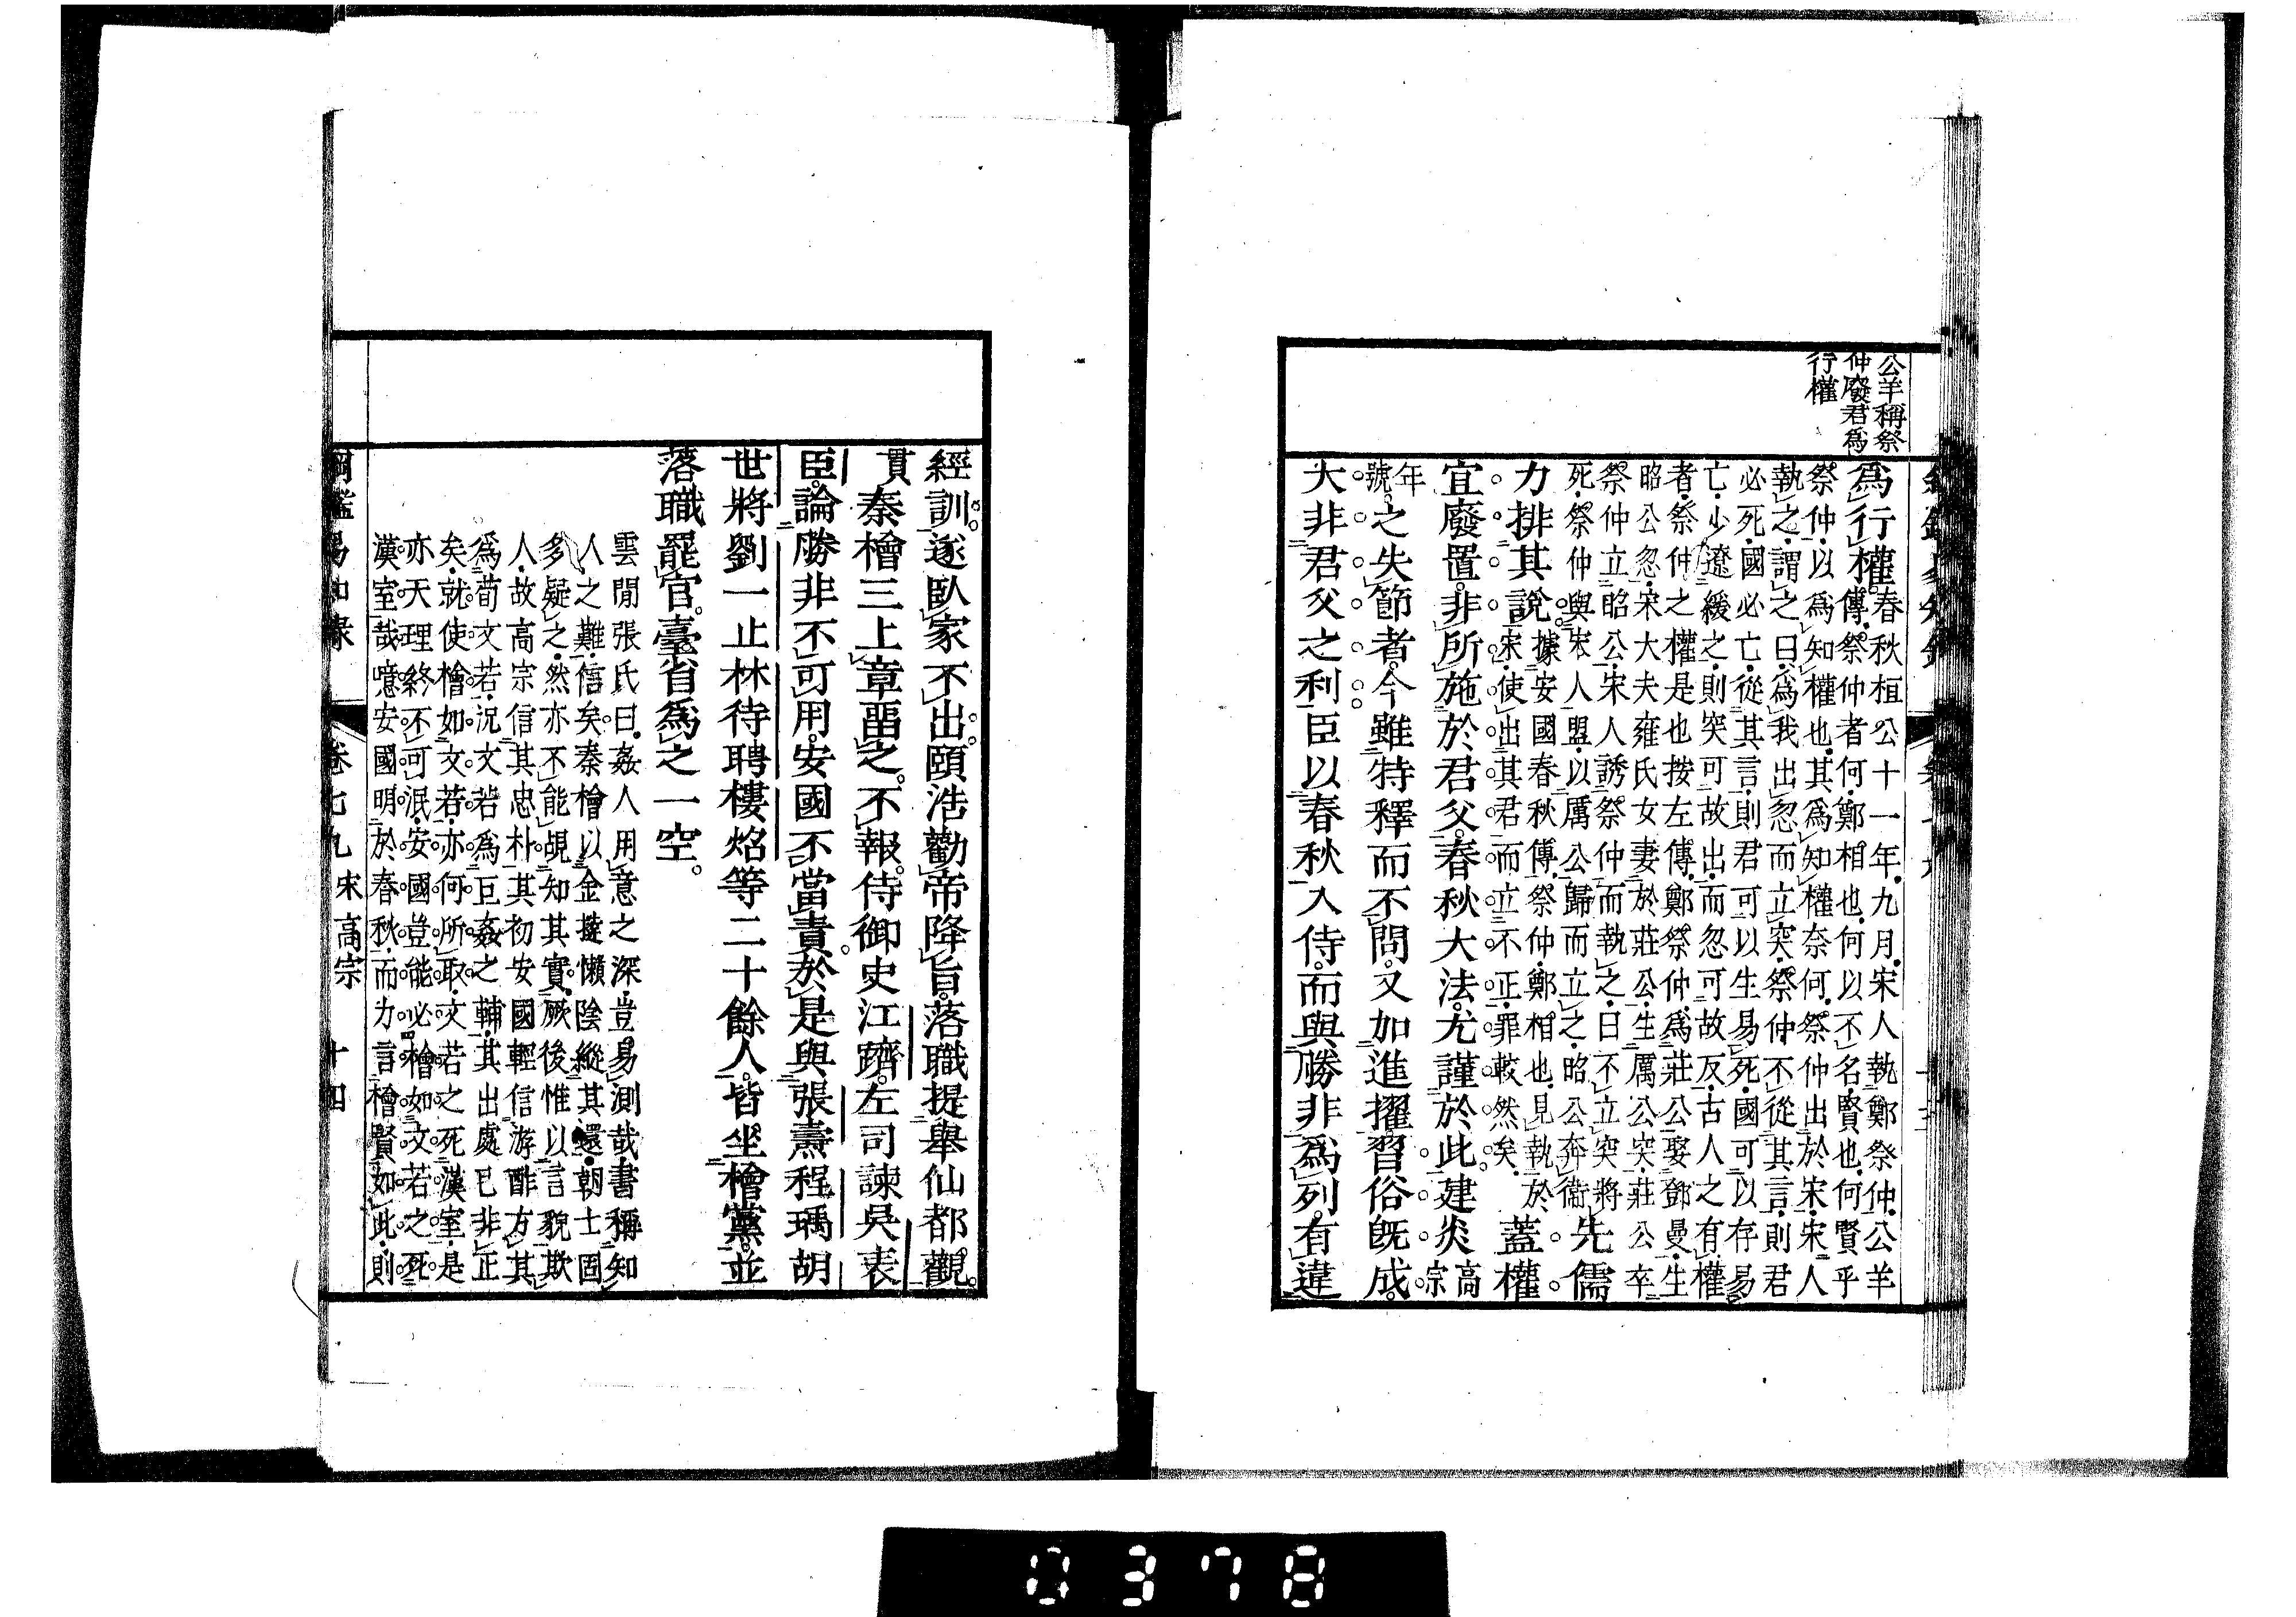 公羊稱祭
仲廢君爲
行權
爲行權春秋桓公十一年九月宋人執鄭祭仲公羊
傳祭仲者何鄭相也何以不名賢也何賢乎
祭仲以爲知權也其爲知權奈何祭仲出於宋宋人
執之謂之曰爲我出忽而立突祭仲不從其言則君
必死國必亡從其言則君可以生易死國可以存易
亡少遼緩之則突可故出而忽可故反古人之有權
者祭仲之權是也按左傳鄭祭仲爲莊公娶鄧曼生
昭公忽宋大夫雍氏女妻於莊公生厲公突莊公卒
祭仲立昭公宋人誘祭仲而執之曰不立突將
死祭仲與宋人盟以厲公歸而立之昭公奔衞先儒
力排其說據安國春秋傳祭仲鄭相也見執於
宋使出其君而立不正罪較然矣蓋權
宜廢置非所施於君父春秋大法尤謹於此建炎高宗
年號之失節者今雖特釋而不問又加進擢習俗旣成
大非君父之利臣以春秋入侍而與勝非爲列有違
經訓遂臥家不出頤浩勸帝降旨落職提舉仙都觀
貫秦檜三上章畱之不報侍御史江躋左司諫吳表
臣論勝非不可用安國不當責於是與張燾程瑀胡
世將劉一止林待聘樓炤等二十餘人皆坐檜黨並
落職罷官臺省爲之一空
雲閒張氏曰姦人用意之深豈易測哉書稱知
人之難信矣秦檜以金撻懶陰縱其還朝士固
多疑之然亦不能覘知其實厥後惟以言貌欺
人故高宗信其忠朴其初安國輕信游酢方其
爲荀文若況文若爲巨姦之輔其出處已非正
矣就使檜如文若亦何所取文若之死漢室是
亦天理終不可泯安國豈能必檜如文若之死
漢室哉噫安國明於春秋而力言檜賢如此則
綱鑑易知錄 卷七九 宋高宗 十四
0378